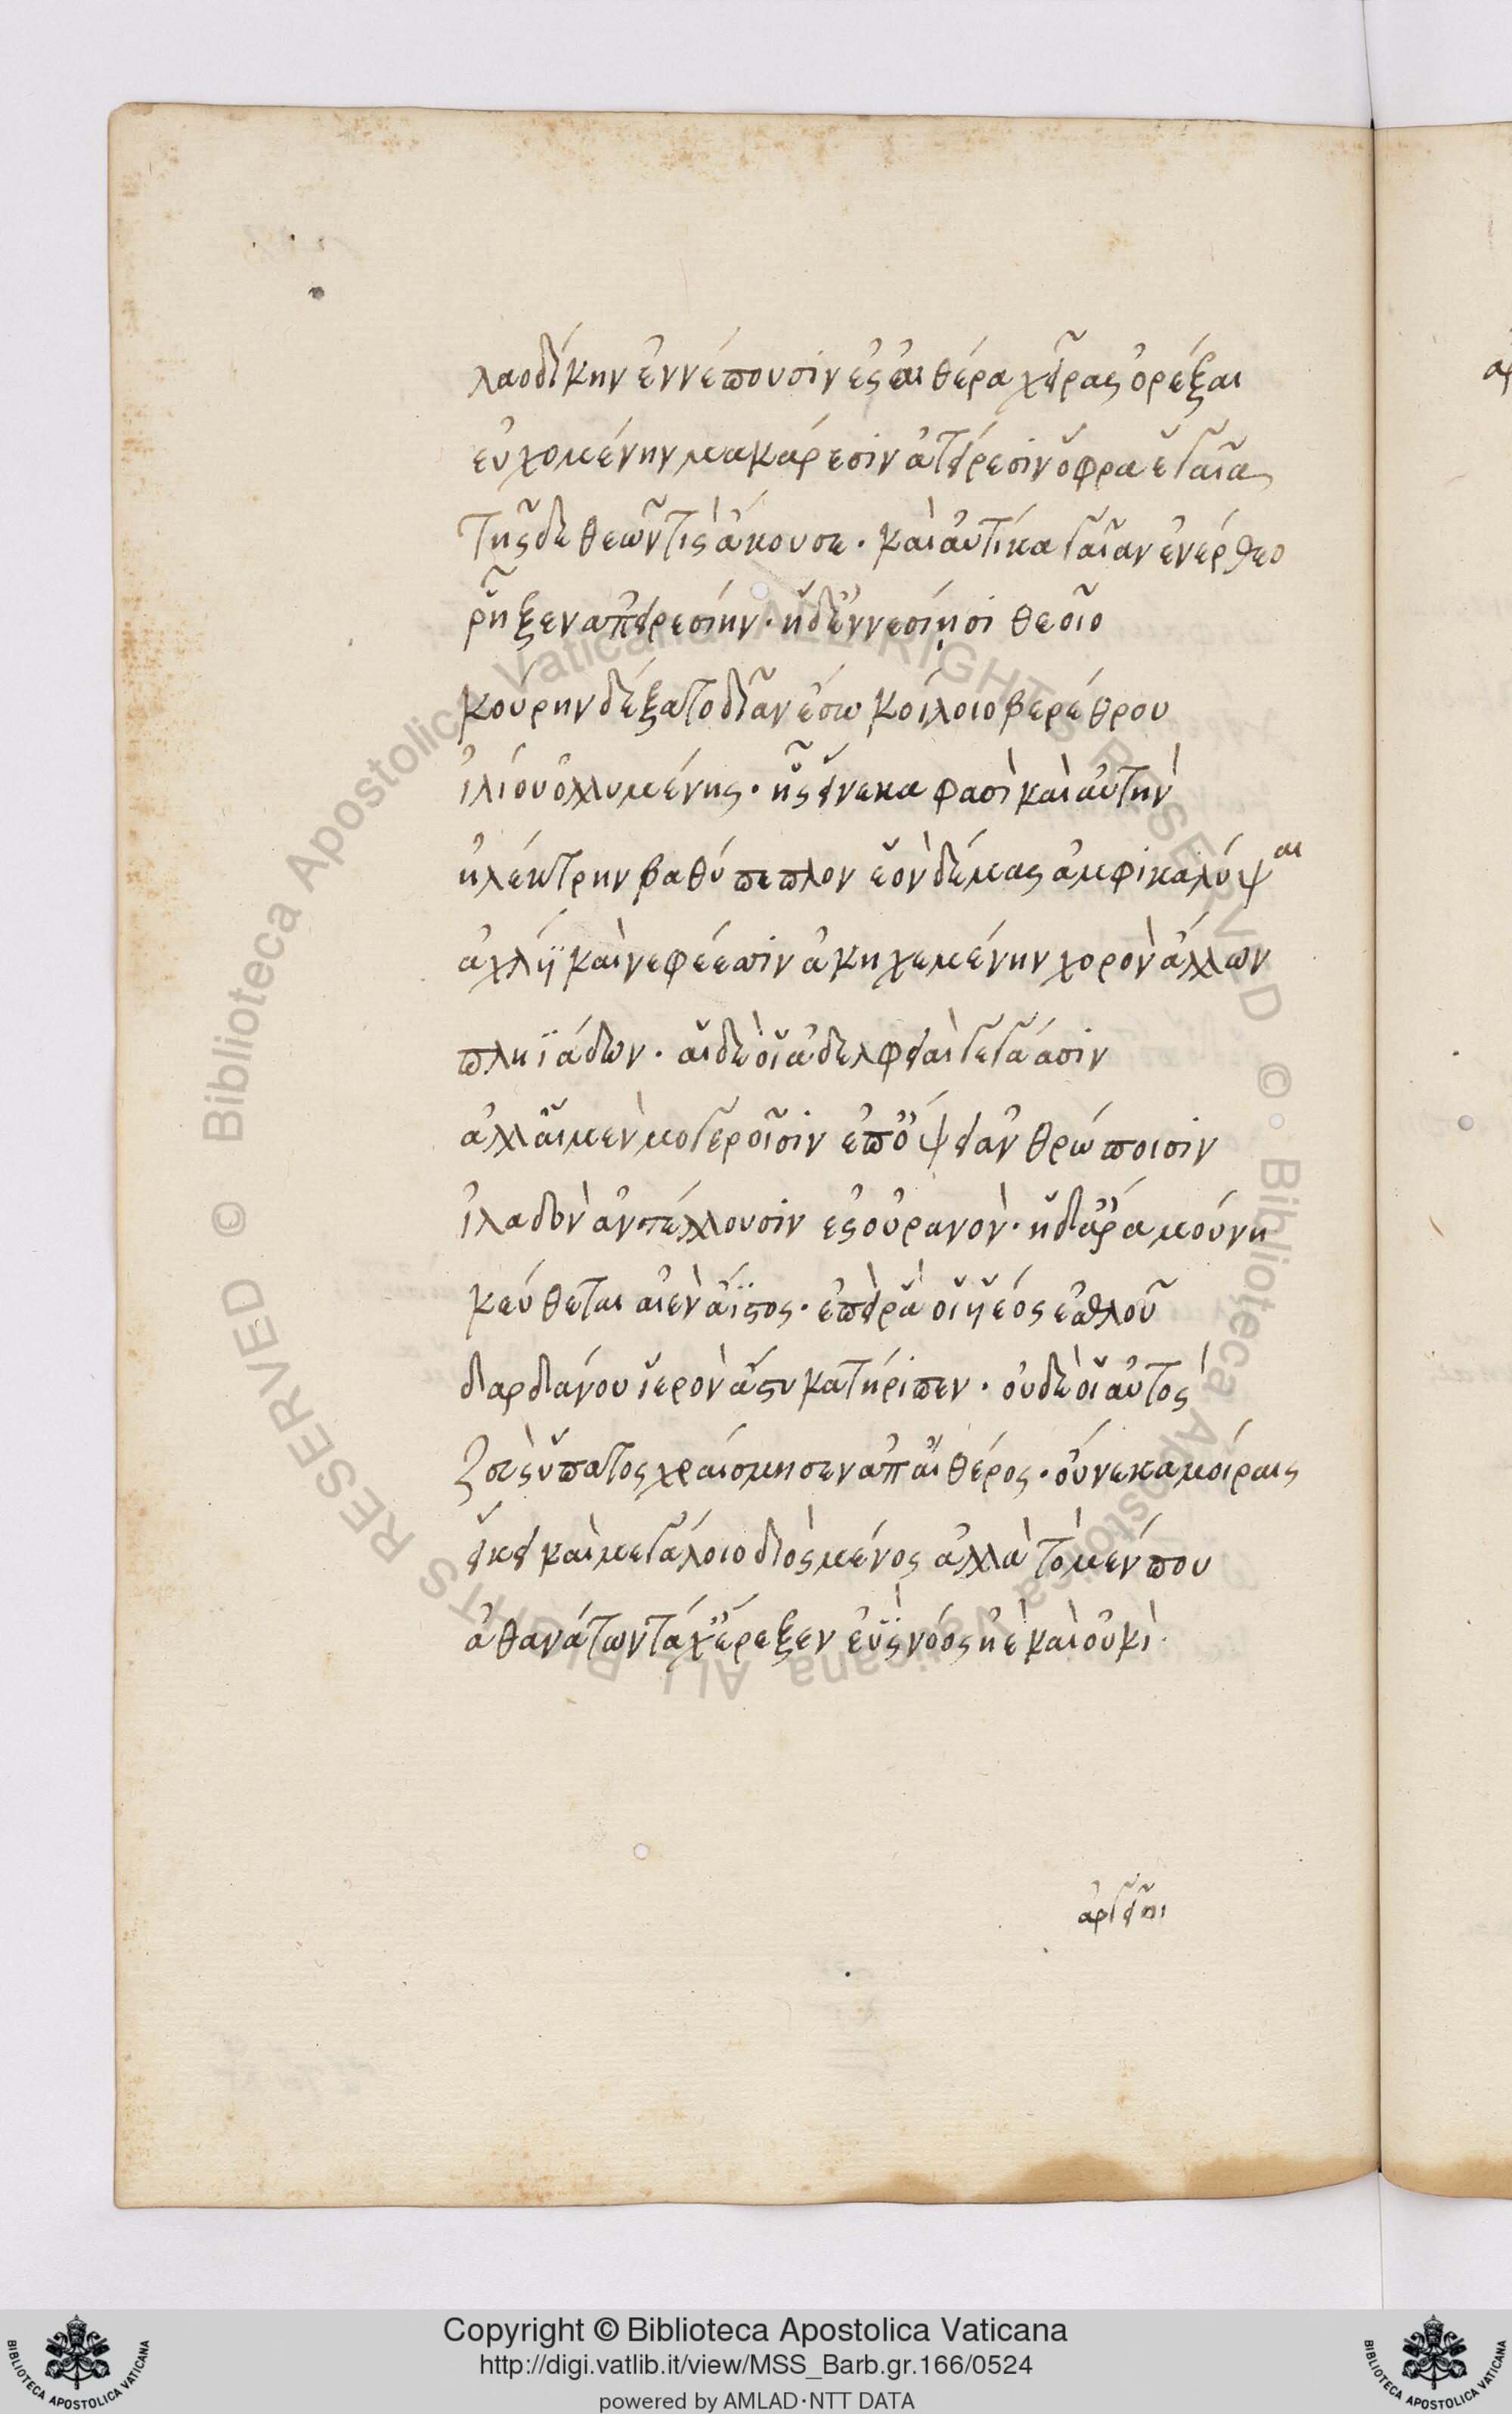 λαοδίκην ἐννέπουσιν ἐς αἰθέρα χεῖρας ὀρέξαι
εὐχομένην μακάρεσιν ἀτειρέσιν ὄφρα ἑ γαῖα
τῆς δὲ θεῶν τὶς ἄκουσε · καὶ αὐτίκα γαῖαν ἔνερθεν
ῥῆξεν ἀπειρεσίην · ἡ δ' ἐννεσίῃσι θεοῖο
κούρην δέξατο δῖαν ἔσω κοίλοιο βερέθρου
ἰλίου ὀλλυμένης · ἧς εἵνεκα φασὶ καὶ αὐτὴν
ἠλέκτρην βαθύπεπλον ἑὸν δέμας ἀμφικαλύψαι
ἀχλύϊ καὶ νεφέεσσιν ἀκηχεμένην χορὸν ἄλλων
πληϊάδων · αἳ δὲ οἱ ἀδελφειαὶ γεγάασιν
ἀλλ' αἳ μὲν μογεροῖσιν ἐπόψει ἀνθρώποισιν
ἰλαδὸν ἀντέλλουσιν ἐς οὐρανὸν · ἡ δ' ἄρα μούνη
κεύθεται αἰὲν ἄϊστος · ἐπεὶ ῥά οἱ υἷέος ἐσθλοῦ
δαρδάνου ἱερὸν ἄστυ κατήριπεν · οὐδέ οἱ αὐτὸς
ζεὺς ὕπατος χραίσμησεν ἀπ' αἰθέρος · οὕνεκα μοίραις
εἴκει καὶ μεγάλοιο διὸς μένος ἀλλὰ τὸ μέν που
ἀθανάτων τάχ' ἔρεξεν ἐῢς νόος ἠὲ καὶ οὐκὶ
ἀργεῖοι
Copyright © Biblioteca Apostolica Vaticana
http://digi.vatlib.it/view/MSS_Barb.gr.166/0524
powered by AMLAD·NTT DATA